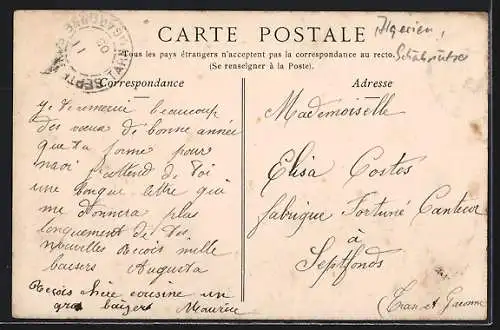 CARTE POSTALE
Tous les pays étrangers n'acceptent pas la correspondance au recto.
(Se renseigner à la Poste).
Algerien,
Correspondance
Adresse
Je te remercie beaucoup
des vœux de bonne année
que ta forme pour
moi j'attend de toi
une longue lettre qui
me donnera plus
longuement de tes
nouvelles Reçois mille
baisers Augusta
Reçois chère cousine un
gros baiser Maurice
Mademoiselle
Elisa Costes
fabrique Fortuné Canteur
à
Septfonds
Tarn et Garonne